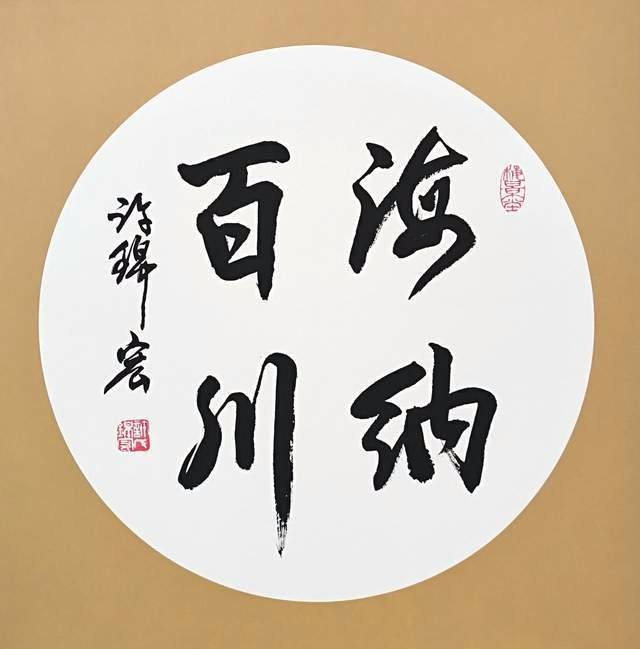 海纳
百川
许锦宏